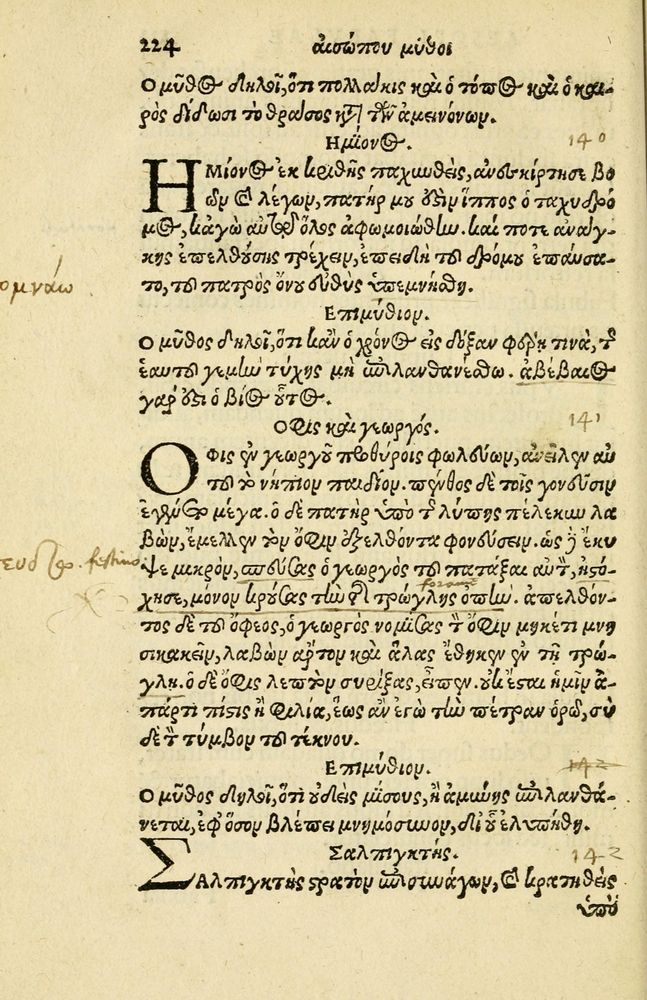 224 αἰσώπου μῦθοι
Ὁ μῦθος δηλοῖ, ὅτι πολλάκις καὶ ὁ τόπος καὶ ὁ και-
ρὸς δίδωσι τὸ θράσος κατὰ τῶν ἀμεινόνων.
Ἡμίονος. 140
ΗΜίονος ἐκ κριθῆς παχυνθεὶς, ἀνεσκίρτησε βο
ῶν καὶ λέγων, πατήρ μου ἐστὶν ἵππος ὁ ταχυδρό
μος, κἀγὼ αὐτῷ ὅλος ἀφωμοιώθην. καί ποτε ἀνάγ-
κης ἐπελθούσης τρέχειν, ἐπειδὴ τοῦ δρόμου ἐπαύσα-
το, τοῦ πατρὸς ὄνου εὐθὺς ὑπεμνήσθη.
Ἐπιμύθιον.
Ὁ μῦθος δηλοῖ, ὅτι κἂν ὁ χρόνος εἰς δόξαν φέρῃ τινὰ, τῆς
ἑαυτοῦ γε μὴν τύχης μὴ ἐπιλανθανέσθω. ἀβέβαιος
γάρ ἐστι ὁ βίος οὗτος.
Ὄφις καὶ γεωργός. 141
ΟΦις ἐν γεωργοῦ προθύροις φωλεύων, ἀνεῖλεν αὐ
τοῦ τὸ νήπιον παιδίον. πένθος δὲ τοῖς γονεῦσιν
ἐγένετο μέγα. ὁ δὲ πατὴρ ὑπὸ τῆς λύπης πέλεκυν λα
βὼν, ἔμελλεν τὸν ὄφιν ἐξελθόντα φονεύσειν. ὡς δὲ ἔκυ
ψε μικρὸν, σπεύσας ὁ γεωργὸς τοῦ πατάξαι αὐτὸν, ἠστό-
χησε, μόνον κρούσας τὴν τῆς τρώγλης ὀπήν. ἀπελθόν-
τος δὲ τοῦ ὄφεος, ὁ γεωργὸς νομίσας τὸν ὄφιν μηκέτι μνη
σικακεῖν, λαβὼν ἄρτον καὶ ἅλας ἔθηκεν ἐν τῇ τρώ-
γλῃ. ὁ δὲ ὄφις λεπτὸν συρίξας, εἶπεν. οὐκ ἔσται ἡμῖν ἀ-
πάρτι πίστις ἢ φιλία, ἕως ἂν ἐγὼ τὴν πέτραν ὁρῶ, σὺ
δὲ τὸν τύμβον τοῦ τέκνου.
Ἐπιμύθιον.
Ὁ μῦθος δηλοῖ, ὅτι οὐδεὶς μίσους, ἢ ἀμύνης ἐπιλανθά-
νεται, ἐφ᾽ ὅσον βλέπει μνημόσυνον, δι᾽ οὗ ἐλυπήθη.
Σαλπιγκτής. 142
ΣΑλπιγκτὴς στρατὸν ἐπισυνάγων, καὶ κρατηθεὶς
ὑπὸ